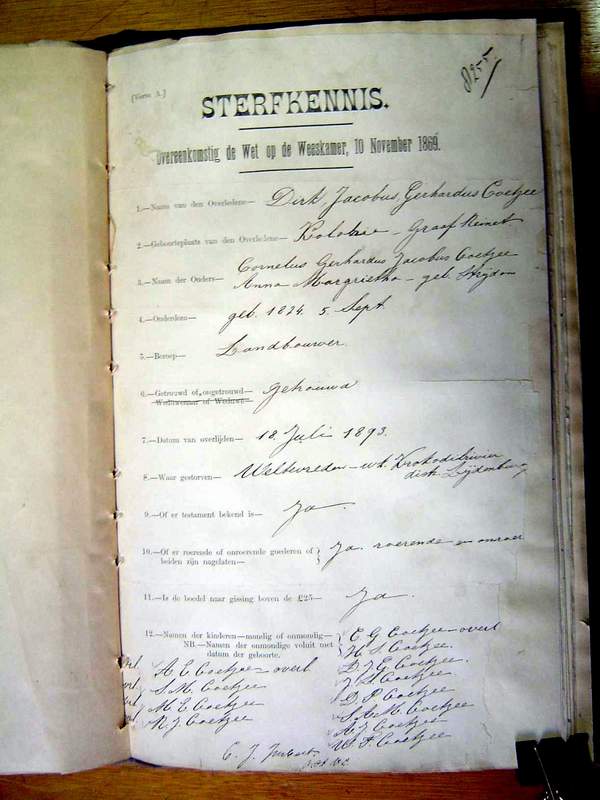 [Vorm A.]
8255
STERFKENNIS.
Overeenkomstig de Wet op de Weeskamer, 10 November 1869.
1.—Naam van den Overledene— Dirk Jacobus Gerhardus Coetzee
2.—Geboorteplaats van den Overledene— Kolonie – Graaf Reinet
3.—Namen der Ouders— Cornelus Gerhardus Jacobus Coetzee
Anna Margrietha – geb. Strydom
4.—Ouderdom— geb. 1824. 5. Sept.
5.—Beroep— Landbouwer
6.—Getrouwd of ongetrouwd— getrouwd
Weduwenaar of Weduwe—
7.—Datum van overlijden— 18. Juli 1893.
8.—Waar gestorven— Weltevreden – wk. Krokodilrivier
distr. Lijdenburg
9.—Of er testament bekend is— Ja.
10.—Of er roerende of onroerende goederen of
beiden zijn nagelaten— Ja. roerende en onroer
11.—Is de boedel naar gissing boven de £25— Ja.
12.—Namen der kinderen—mondig of onmondig—
NB.—Namen der onmondige voluit met
datum der geboorte.
C G Coetzee – overl
H S. Coetzee.
D J G. Coetzee.
J S. Coetzee
D. P. Coetzee
S A M. Coetzee
A J Coetzee
W. F. Coetzee
A. E. Coetzee – overl
S. M. Coetzee
M E Coetzee
N. J. Coetzee
C. J.